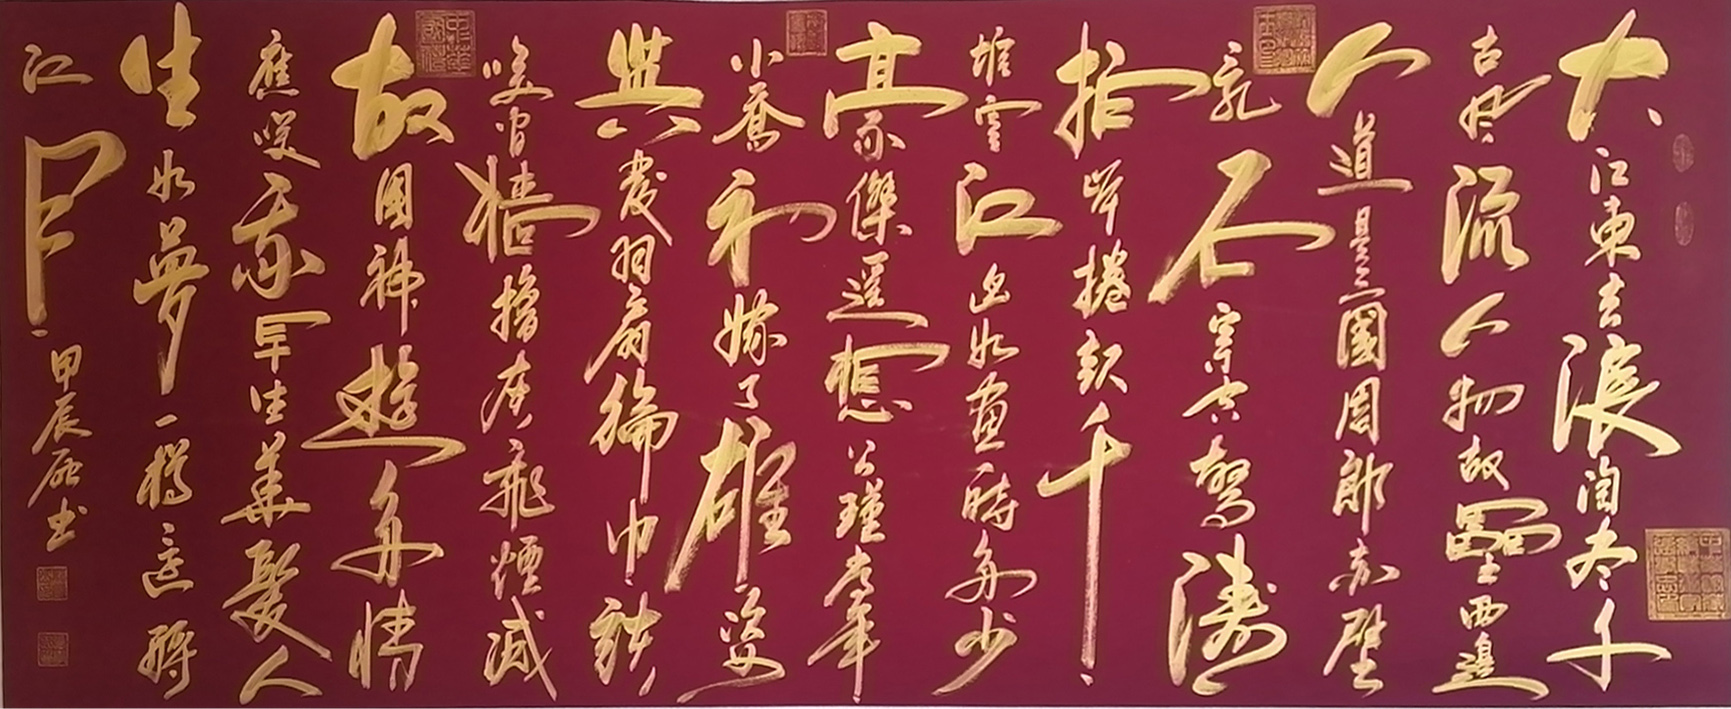 大江東去浪淘尽千
古風流人物故壘西邊
人道是三國周郎赤壁
乱石穿空驚濤
拍岸捲起千
堆雪江山如畫時多少
豪傑遥想公瑾當年
小喬初嫁了雄姿
發羽扇綸巾談
笑間檣櫓灰飛煙滅
故國神遊多情
應笑我早生華髮人
生如夢一樽還酹
江月
甲辰书